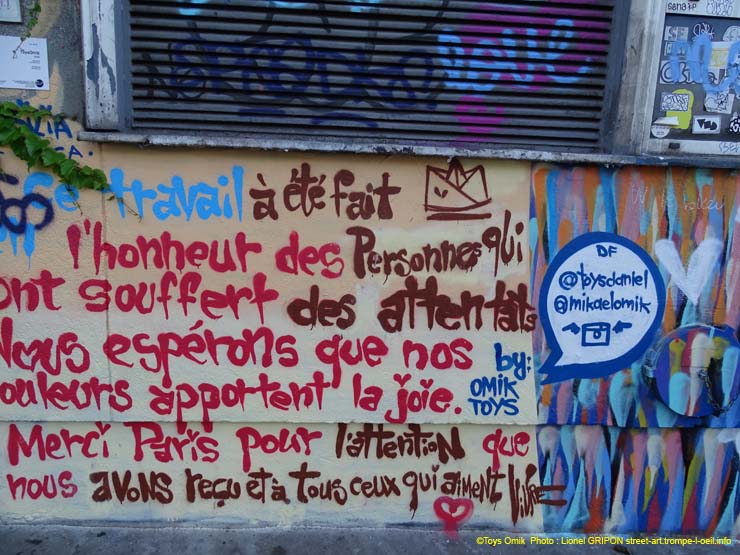 Ce travail à été fait
l'honheur des Personnes qui
ont souffert des attentats
Nous espérons que nos
couleurs apportent la joie.
by:
OMIK
TOYS
Merci Paris pour l'attention que
nous avons reçu et à tous ceux qui aiment Vivre
DF
@toysdaniel
@mikaelomik
©Toys Omik Photo : Lionel GRIPON street-art.trompe-l-oeil.info